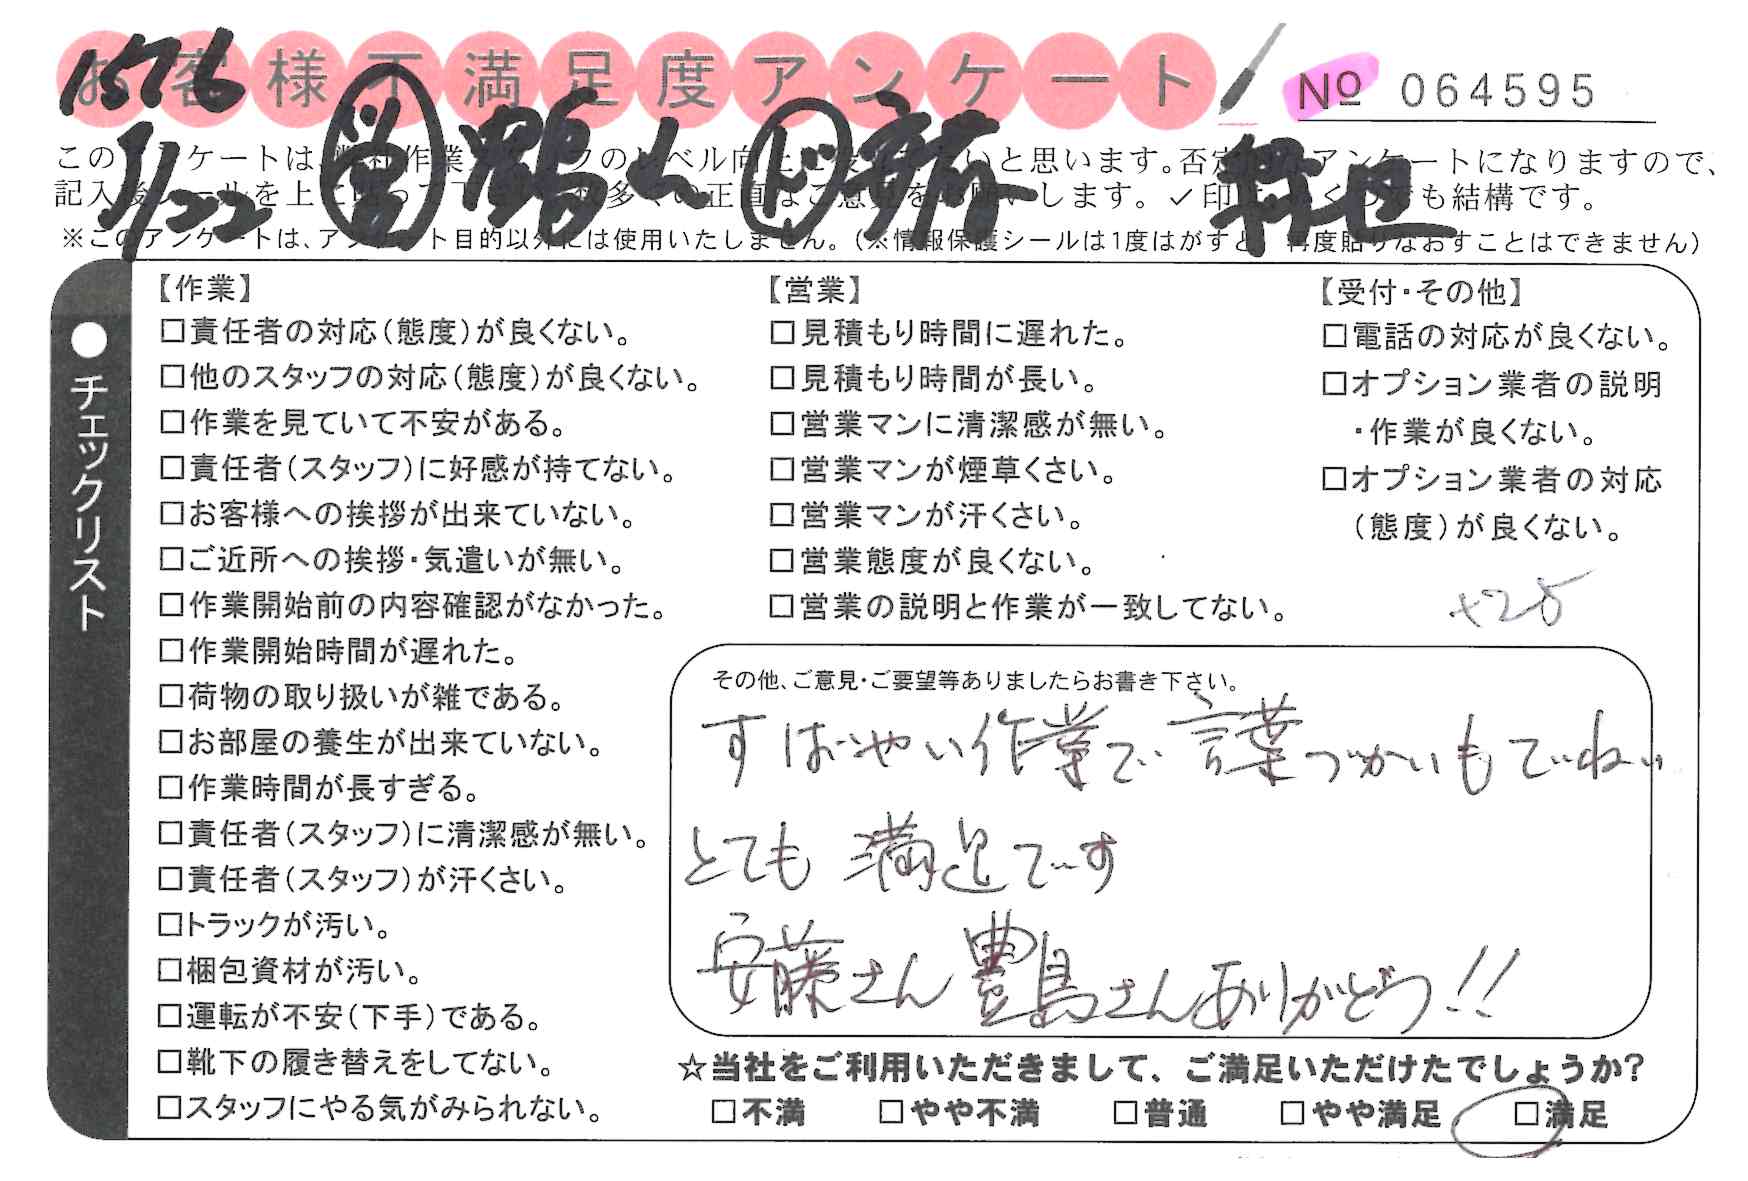 お客様不満足度アンケート
№ 064595
1576
1/22
このアンケートは、 作業 のレベル向上 いと思います。否定 アンケートになりますので、
記入後シールを上に貼って下さい。数多くの正直なご意見をお願いします。✓印は、いくつでも結構です。
※このアンケートは、アンケート目的以外には使用いたしません。(※情報保護シールは1度はがすと、再度貼りなおすことはできません)
●チェックリスト
【作業】
□責任者の対応(態度)が良くない。
□他のスタッフの対応(態度)が良くない。
□作業を見ていて不安がある。
□責任者(スタッフ)に好感が持てない。
□お客様への挨拶が出来ていない。
□ご近所への挨拶・気遣いが無い。
□作業開始前の内容確認がなかった。
□作業開始時間が遅れた。
□荷物の取り扱いが雑である。
□お部屋の養生が出来ていない。
□作業時間が長すぎる。
□責任者(スタッフ)に清潔感が無い。
□責任者(スタッフ)が汗くさい。
□トラックが汚い。
□梱包資材が汚い。
□運転が不安(下手)である。
□靴下の履き替えをしてない。
□スタッフにやる気がみられない。
【営業】
□見積もり時間に遅れた。
□見積もり時間が長い。
□営業マンに清潔感が無い。
□営業マンが煙草くさい。
□営業マンが汗くさい。
□営業態度が良くない。
□営業の説明と作業が一致してない。
【受付・その他】
□電話の対応が良くない。
□オプション業者の説明
・作業が良くない。
□オプション業者の対応
(態度)が良くない。
+25
その他、ご意見・ご要望等ありましたらお書き下さい。
すばやい作業で言葉づかいもていねい
とても満足です
安藤さん豊島さんありがどう!!
☆当社をご利用いただきまして、ご満足いただけたでしょうか?
□不満 □やや不満 □普通 □やや満足 □満足